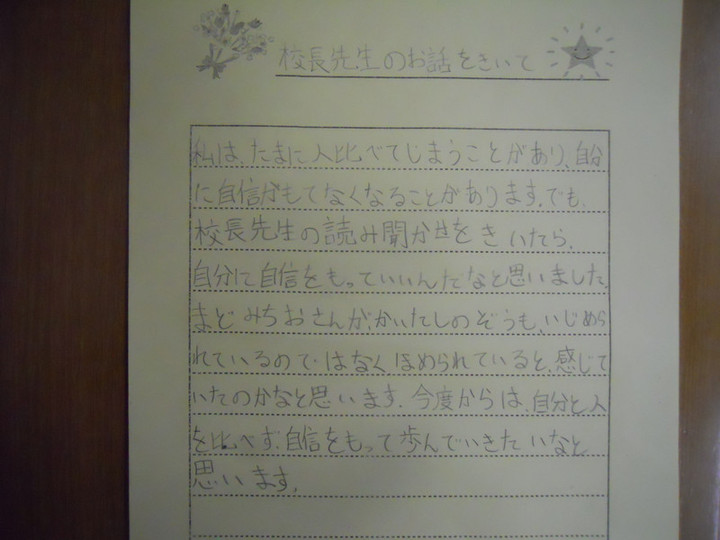 校長先生のお話をきいて
私は、たまに人比べてしまうことがあり、自分
に自信がもてなくなることがあります。でも、
校長先生の読み聞かせをきいたら、
自分に自信をもっていいんだなと思いました。
まどみちおさんが、かいたしのぞうも、いじめら
れているのではなくほめられていると、感じて
いたのかなと思います。今度からは、自分と人
を比べず、自信をもって歩んでいきたいなと
思います。